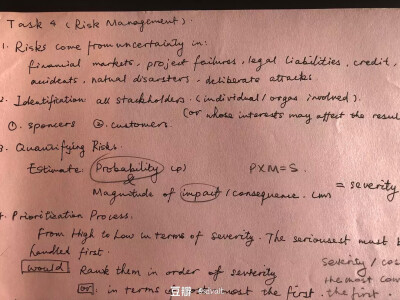 Task 4 (Risk Management).
1. Risks come from uncertainty in:
financial markets, project failures, legal liabilities, credit,
accidents, natural disarsters, deliberate attacks.
2. Identification all stackholders. (individual/orgas involved).
(or whose interests may affect the resul
①. sponcers ②. customers.
3. Quantifying Risks.
Estimate Probability (p) P×M=S.
&
Magnitude of impact/consequence. (m) = severity
4. Prioritization Process.
From High to Low in terms of severity. The seriousest must b
handled first.
would Rank them in order of severity severity/cos
or in terms the most the first. the most
the first.
豆瓣